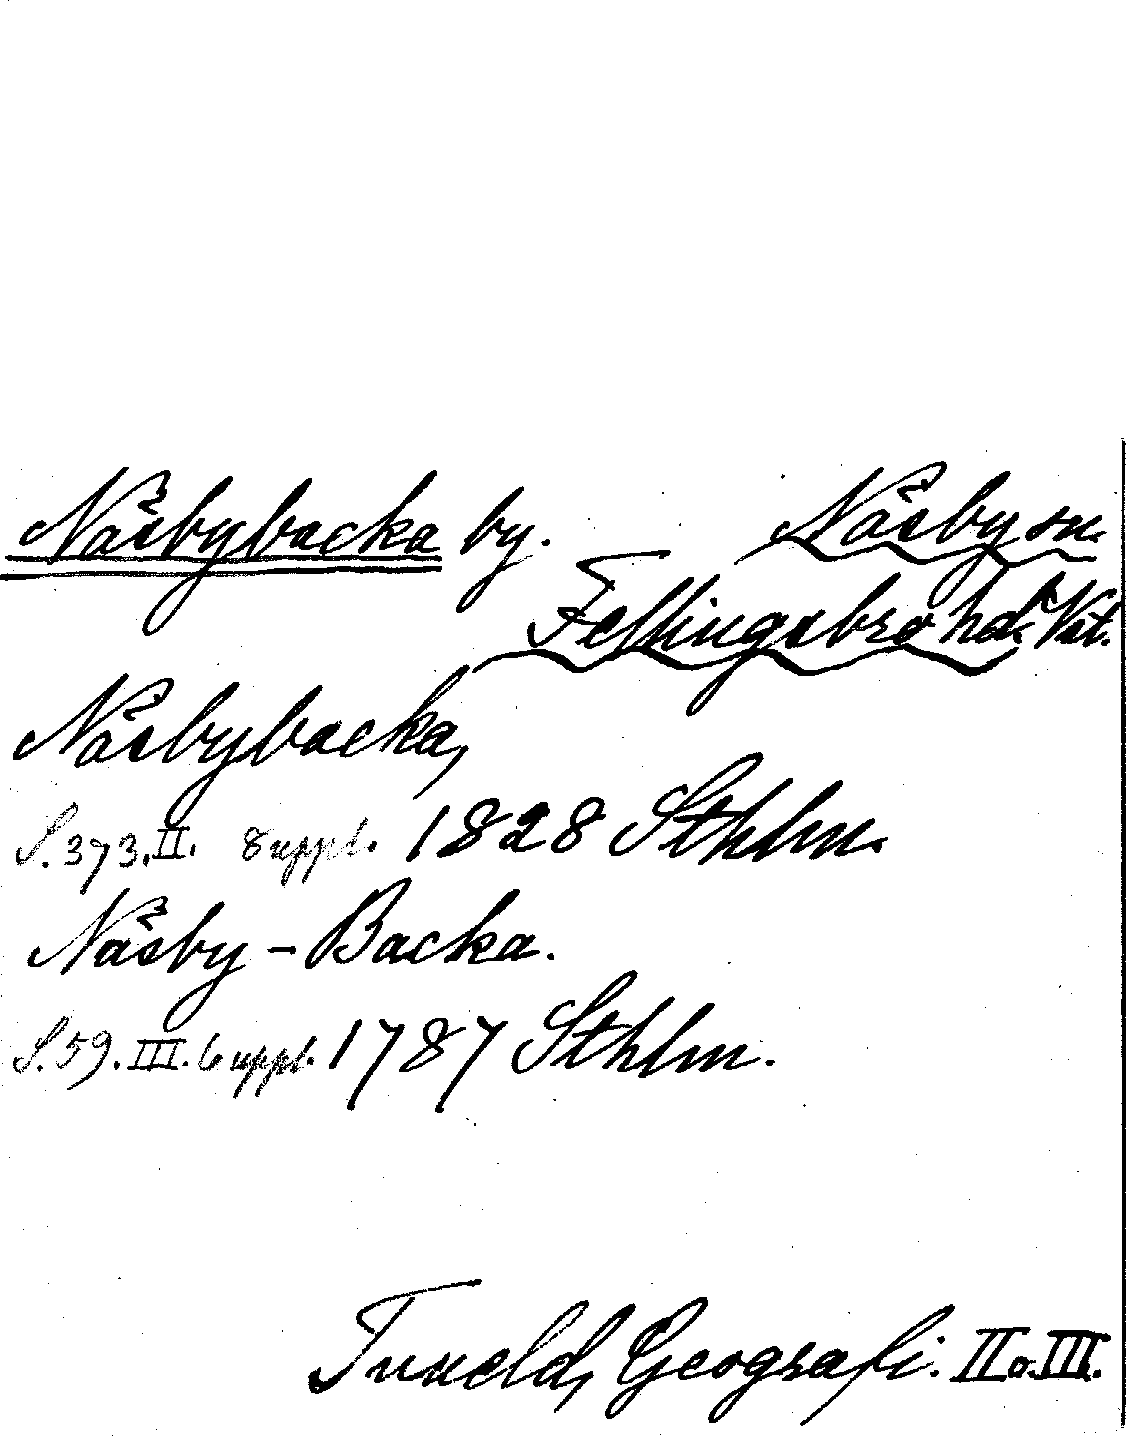 Näsbybacka by. Näsby sn.
Fellingsbro hd. Vst.
Näsbybacka,
S. 373. II. 8 uppl. 1828 Sthlm.
Näsby - Backa.
S. 59. III. 6 uppl. 1787 Sthlm.
Tuneld, Geografi. II o. III.